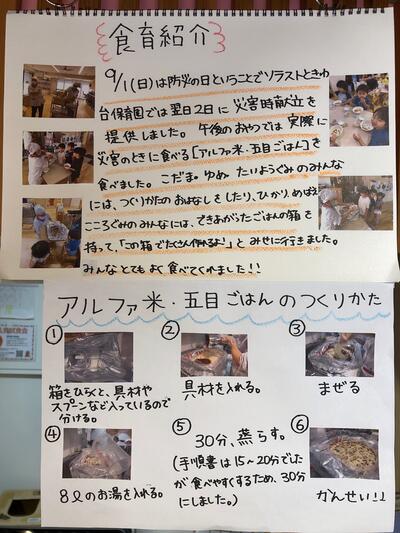 食育紹介
9/1(日)は防災の日ということでソラストときわ
台保育園では翌日2日に災害時献立を
提供しました。午後のおやつでは実際に
災害のときに食べる「アルファ米・五目ごはん」を
食べました。こだま。ゆめ。たいようぐみのみんな
には、つくりかたのおはなしをしたり、ひかり。めばえ。
こころぐみのみんなには、できあがったごはんの箱を
持って、「この箱でたくさん作れるよ!」とみせに行きました。
みんなとてもよく食べてくれました!!
アルファ米・五目ごはんのつくりかた
①
箱をひらくと、具材や
スプーンなど入っているので
分ける。
②
具材を入れる。
③
まぜる
④
8ℓのお湯を入れる。
⑤
30分、蒸らす。
(手順書は15〜20分でした
が食べやすくするため、30分
にしました。)
⑥
かんせい!!